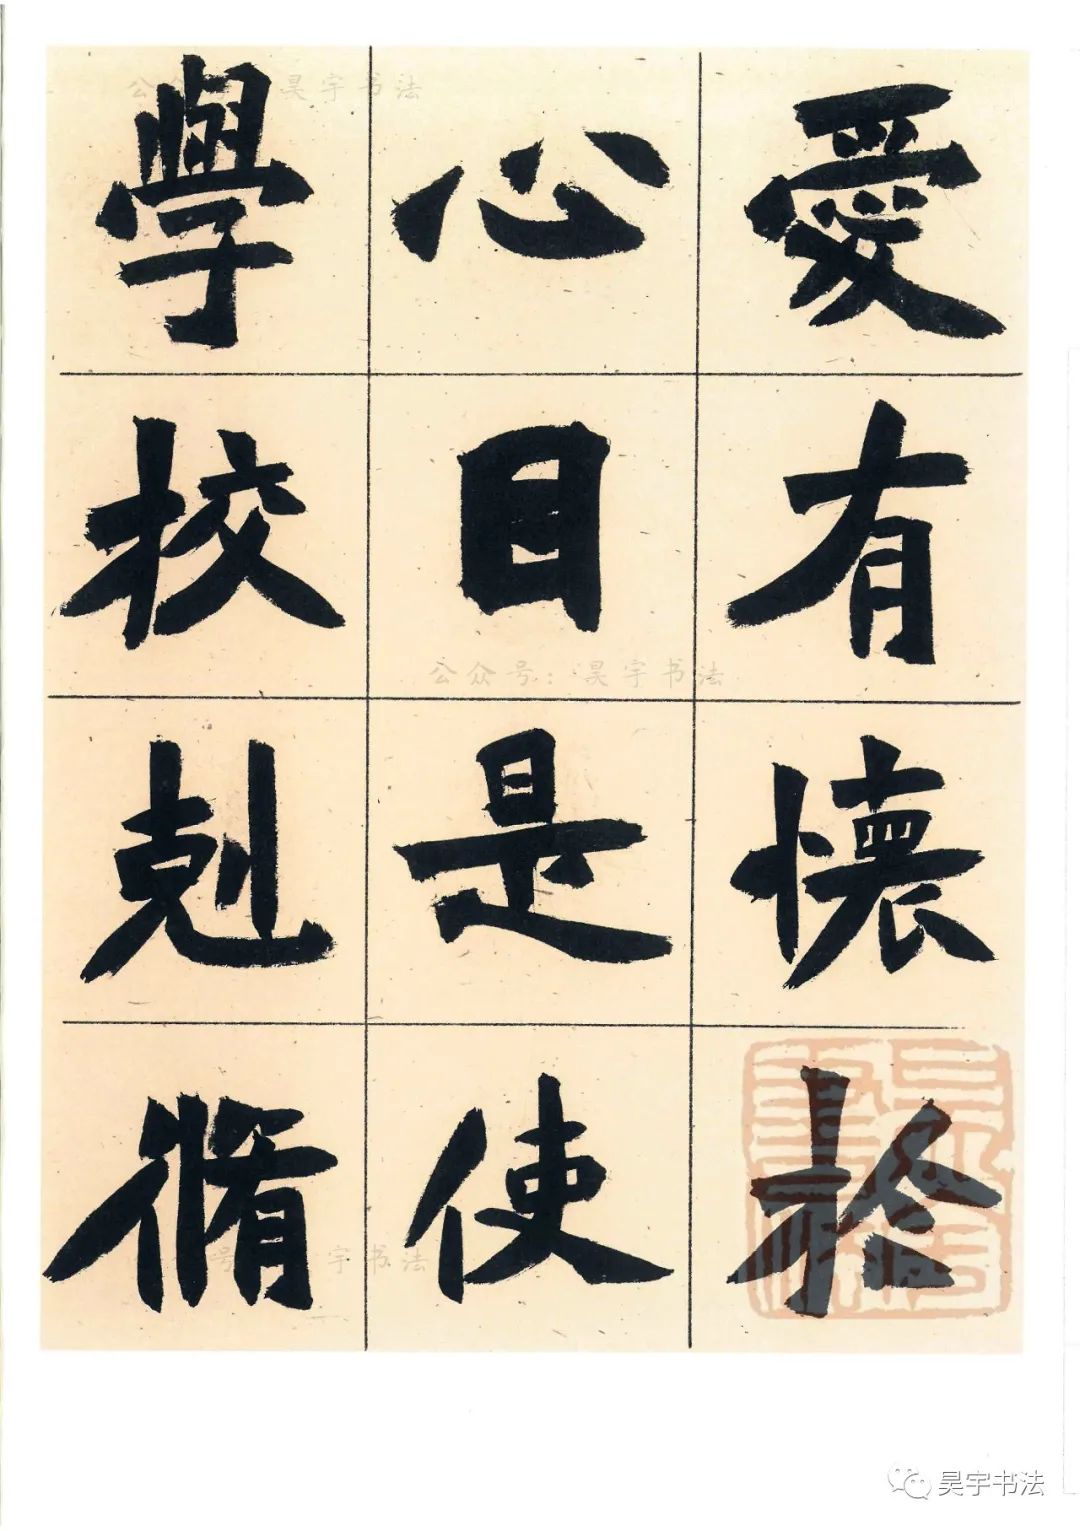 愛有懷於
心目是使
學校剋脩
公众号：昊宇书法
昊宇书法